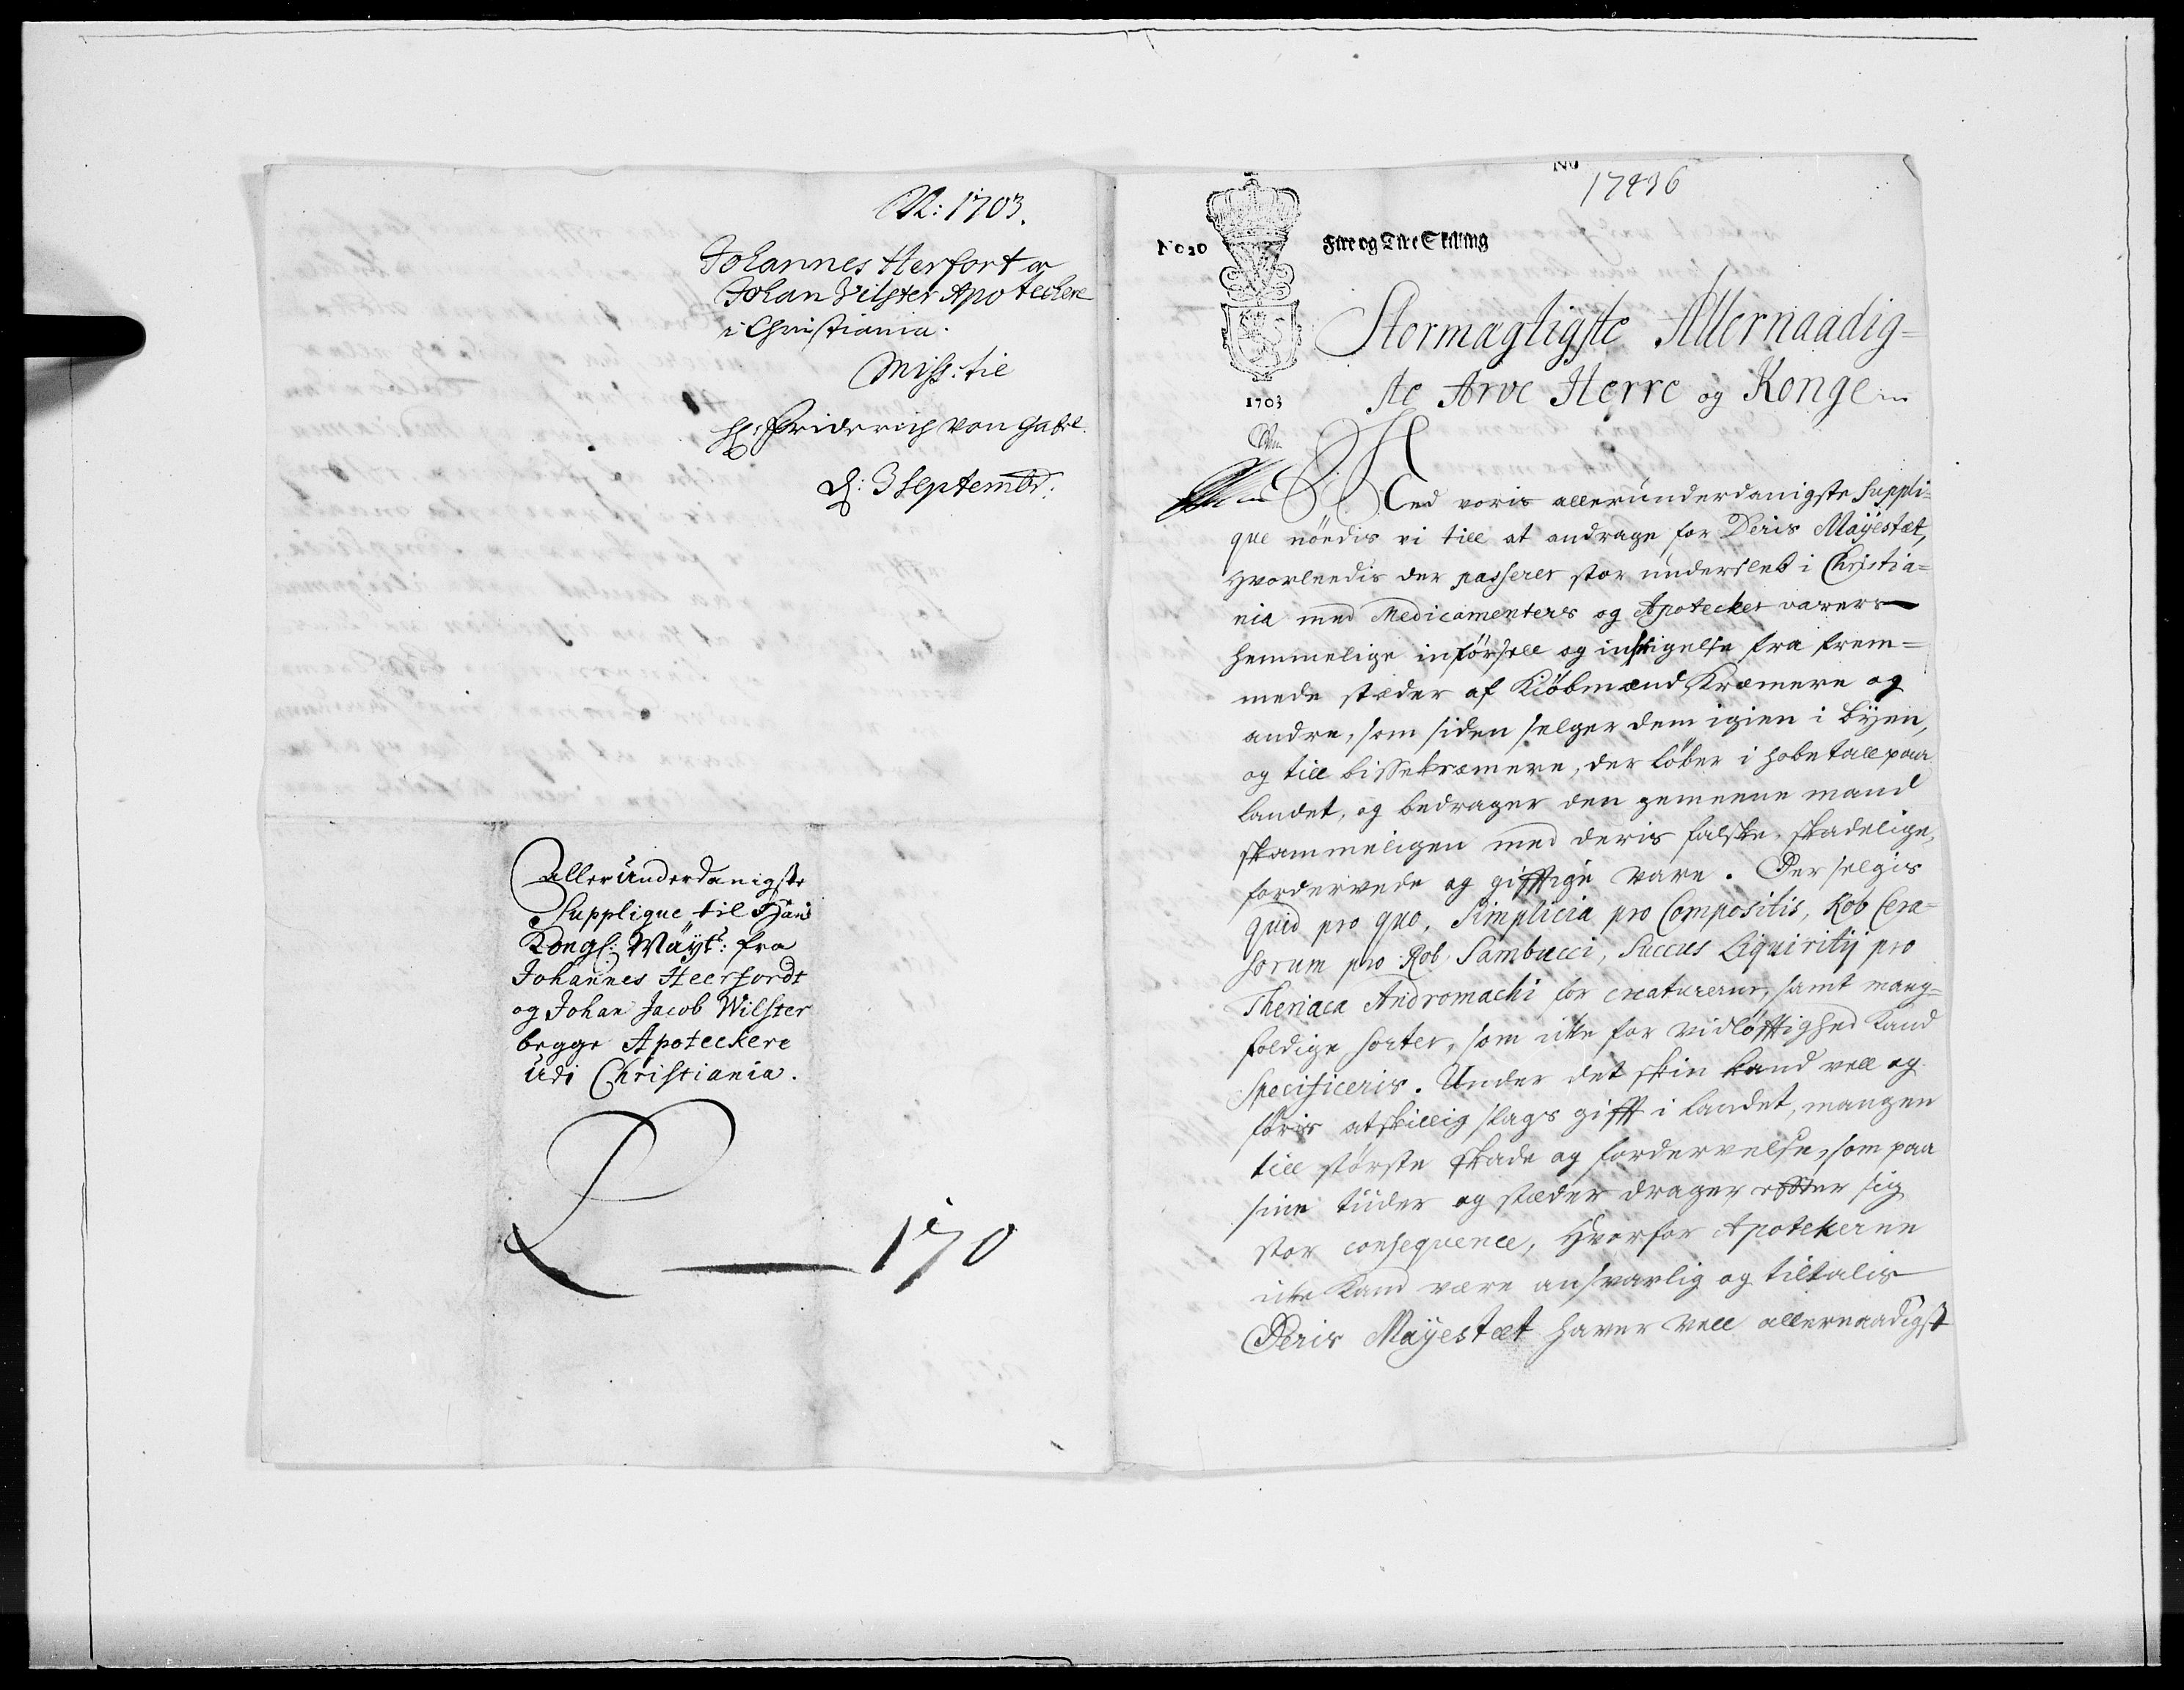 N: 1703.
Johannes Herfort og
Johan Vilster Apotechere
i Christiania.
Miss: til
H: Friderich von Gabel.
d: 3 Septembr:
Allerunderdanigste
Supplique til Hans
Kongl: Mäyt: fra
Johannes Heerfordt
og Johan Jacob Wilster
begge Apoteckere
udi Christiania.
170
No
17436
No 20
Fire og Tive Skilling
1703
Stormagtigste Allernaadig=
ste Arve Herre og Konge
Med voris allerunderdanigste Suppli=
que nöedis vi till at andrage for Deris Mayestæt,
hvorleedis der passerer stor underslæb i Christia=
nia med Medicamenters og Apotecker varers
hemmelige införsell og indsnigelse fra frem=
mede stæder af Kiöbmænd Kræmere og
andre, som siden selger dem igien i byen,
og till bissekræmere, der löber i hobetall paa
landet, og bedrager den gemeene mand
skammeligen med deris falske, skadelige,
fordervede og gifftige vare. Der selgis
quid pro quo, Simplicia pro Compositis, Rob Cera=
sorum pro Rob Sambucci, Succus Liquiritij pro
Theriaca Andromachi for creaturerne, samt mang=
foldige sorter, som icke for vidlöfftighed kand
specificeris. Under det skin kand vell og
föris atskillig slags gifft i landet, mangen
till störste skade og fordervelse, som paa
sine tiider og stæder drager effter sig
stor consequence, hvorfor Apotekerne
icke kand være ansvarlig og tiltalis
Deris Mayestæt haver vell allernaadigst